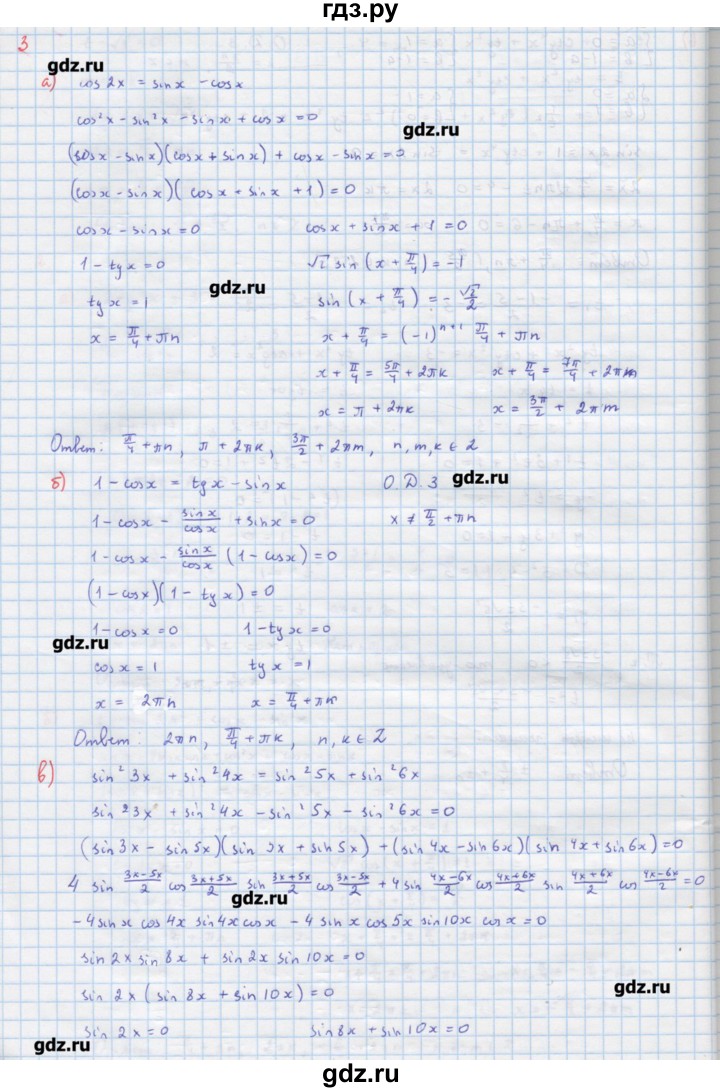 гдз.ру
3
gdz.ru
а) cos 2x = sin x - cos x
cos²x - sin²x - sin x + cos x = 0
gdz.ru
(cos x - sin x)(cos x + sin x) + cos x - sin x = 0
(cos x - sin x)(cos x + sin x + 1) = 0
cos x - sin x = 0 cos x + sin x + 1 = 0
1 - tg x = 0 √2 sin (x + π/4) = -1
gdz.ru
tg x = 1 sin (x + π/4) = - √2/2
x = π/4 + πn x + π/4 = (-1)ⁿ⁺¹ π/4 + πn
x + π/4 = 5π/4 + 2πk x + π/4 = 7π/4 + 2πm
x = π + 2πk x = 3π/2 + 2πm
Ответ: π/4 + πn, π + 2πk, 3π/2 + 2πm, n, m, k ∈ Z
б) 1 - cos x = tg x - sin x О.Д.З gdz.ru
1 - cos x - sin x/cos x + sin x = 0 x ≠ π/2 + πn
1 - cos x - sin x/cos x (1 - cos x) = 0
(1 - cos x)(1 - tg x) = 0
1 - cos x = 0 1 - tg x = 0
gdz.ru
cos x = 1 tg x = 1
x = 2πn x = π/4 + πk
Ответ: 2πn, π/4 + πk, n, k ∈ Z
в) sin²3x + sin²4x = sin²5x + sin²6x
sin²3x + sin²4x - sin²5x - sin²6x = 0
(sin 3x - sin 5x)(sin 3x + sin 5x) + (sin 4x - sin 6x)(sin 4x + sin 6x) = 0
4 sin (3x-5x)/2 cos (3x+5x)/2 sin (3x+5x)/2 cos (3x-5x)/2 + 4 sin (4x-6x)/2 cos (4x+6x)/2 sin (4x+6x)/2 cos (4x-6x)/2 = 0
gdz.ru
-4 sin x cos 4x sin 4x cos x - 4 sin x cos 5x sin 10x cos x = 0
sin 2x sin 8x + sin 2x sin 10x = 0
sin 2x (sin 8x + sin 10x) = 0
gdz.ru
sin 2x = 0 sin 8x + sin 10x = 0
gdz.ru
гдз.ру